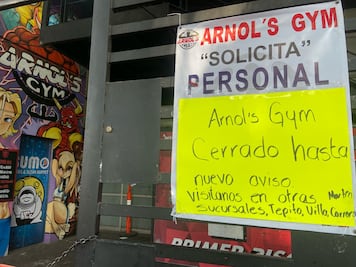 ARNOL'S
GYM
SUMO
ARNOL'S GYM
"SOLICITA"
PERSONAL
Arnol's Gym
Cerrado hasta
nuevo aviso
visitanos en otras
sucursales, Tepito, Villa,
PRIMER